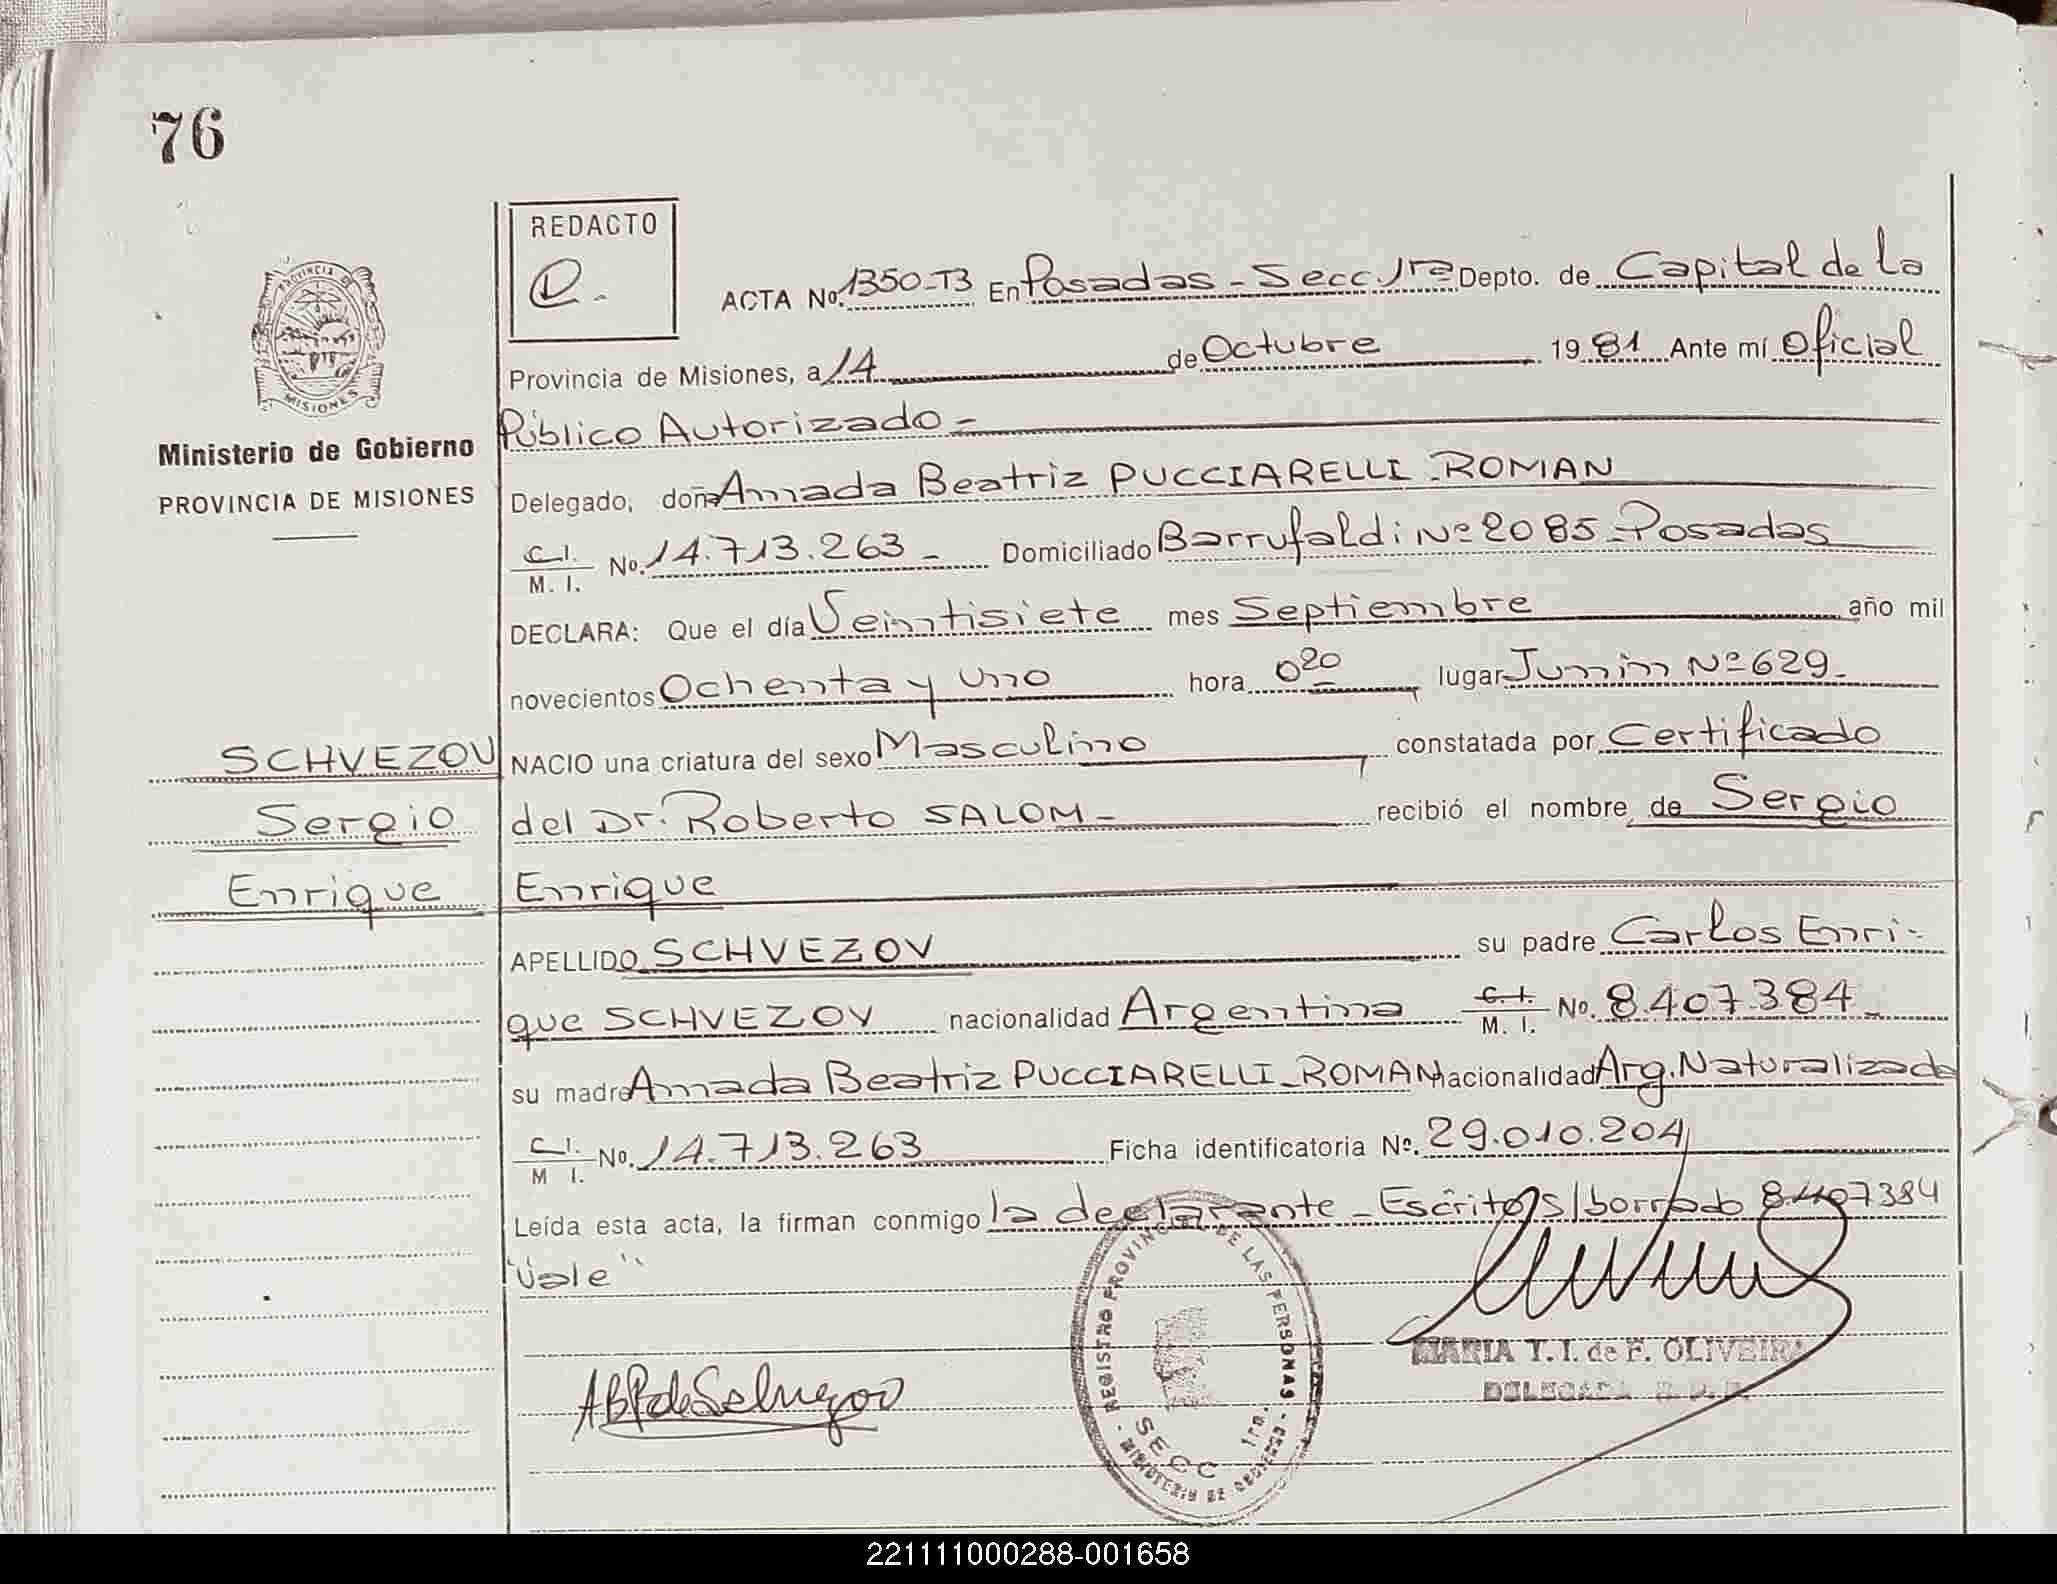 76
REDACTO
PROVINCIA DE
MISIONES
ACTA No. 1350-T3 En Posadas - Secc. 1ra Depto. de Capital de la
Provincia de Misiones, a 14 de Octubre 1981 Ante mí Oficial
Público Autorizado -
Ministerio de Gobierno
PROVINCIA DE MISIONES
Delegado, doña Amada Beatriz PUCCIARELLI - ROMAN
C.I.
M. I. No. 14.713.263 - Domiciliado Barrufaldi Nº 2085 - Posadas
DECLARA: Que el día Veintisiete mes Septiembre año mil
novecientos Ochenta y Uno hora 0 20 lugar Junin Nº 629 -
SCHVEZOV NACIO una criatura del sexo Masculino constatada por Certificado
Sergio del Dr. Roberto SALOM - recibió el nombre de Sergio
Enrique Enrique
APELLIDO SCHVEZOV su padre Carlos Enri-
que SCHVEZOV nacionalidad Argentina C. I.
M. I. No. 8.407.384 -
su madre Amada Beatriz PUCCIARELLI - ROMAN nacionalidad Arg. Naturalizada
C. I.
M I. No. 14.713.263 Ficha identificatoria Nº. 29.010.204
Leída esta acta, la firman conmigo la declarante - Escrito s/borrado 8.407384
"Vale"
REGISTRO PROVINCIAL DE LAS PERSONAS - MINISTERIO DE GOBIERNO -
SECC 1ra.
MARIA T. I. de F. OLIVEIRA
DELEGADA
221111000288-001658